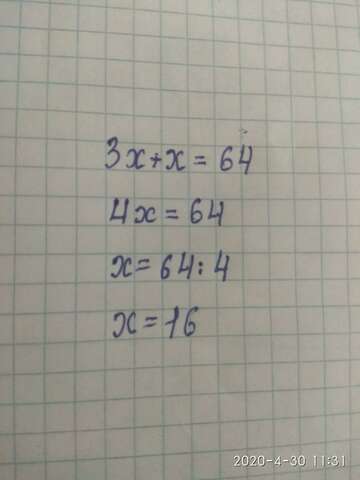 3x+x=64
4x=64
x=64:4
x=16
2020-4-30 11:31